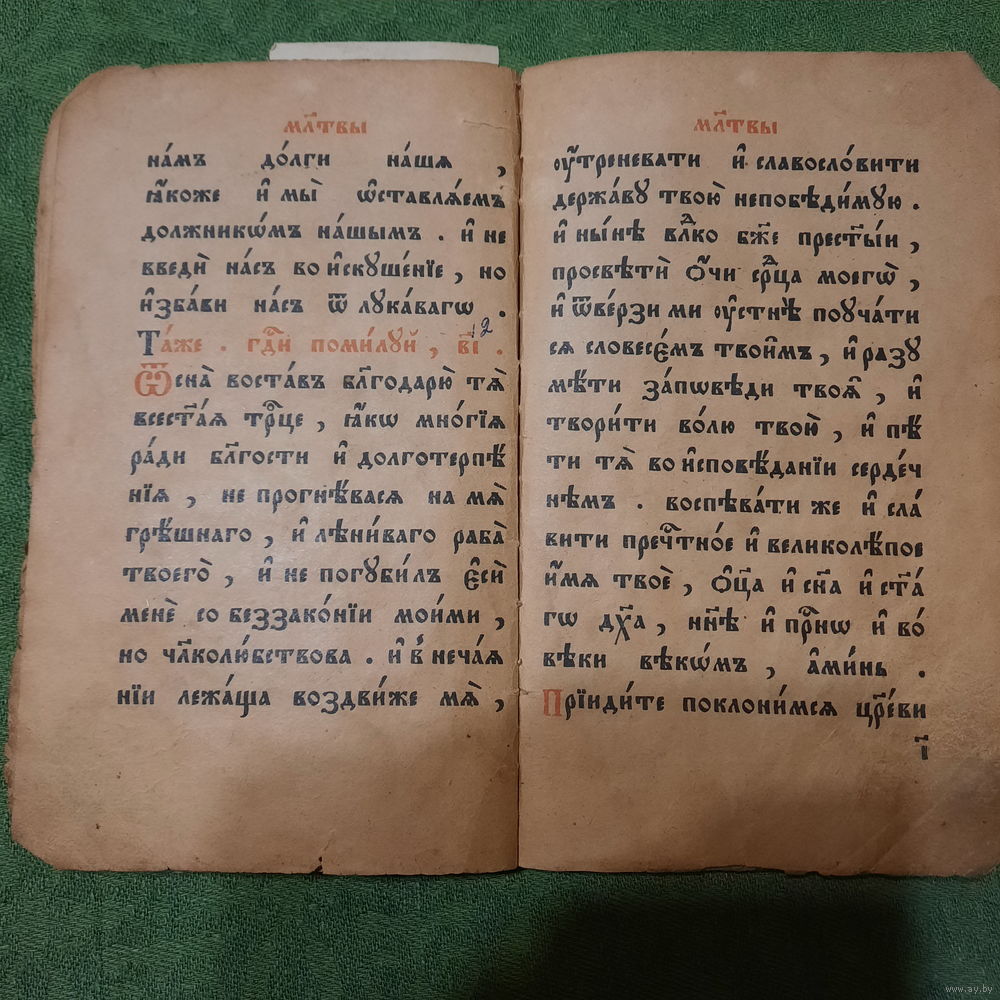 мл҃твы
на́мъ до́лги на́шѧ ,
ꙗ҆́коже и҆ мы̀ ѡ҆ставлѧ́емъ
должникѡ́мъ на́шымъ . и҆ не
введѝ на́съ во и҆скꙋше́нїе , но
и҆зба́ви на́съ ѿ лꙋка́вагѡ .
Та́же . гдⷭ҇и поми́лꙋй , в҃і . 12
Ѿ сна̀ воста́въ бл҃годарю̀ тѧ̀
всест҃а́ѧ трⷪ҇це , ꙗ҆́кѡ мно́гїѧ
ра́ди бл҃гости и҆ долготерпѣ́
нїѧ , не прогнѣ́васѧ на мѧ̀
грѣ́шнаго , и҆ лѣни́ваго раба̀
твоего̀ , и҆ не погꙋби́лъ є҆сѝ
менѐ со беззако́нїи мои́ми ,
но чл҃колю́бствова . и҆ в неча́ѧ
нїи лежа́ща воздви́же мѧ̀ ,
мл҃твы
оу҆́треневати и҆ славосло́вити
держа́вꙋ твою̀ непобѣди́мꙋю .
и҆ ны́нѣ влⷣко бж҃е прест҃ы́и ,
просвѣтѝ ѻ҆́чи срⷣца моегѡ̀ ,
и҆ ѿве́рзи ми оу҆стнѣ̀ поꙋча́ти
сѧ словесє́мъ твои̑мъ , и҆ разꙋ
мѣ́ти за́пѡвѣди твоѧ̑ , и҆
твори́ти во́лю твою̀ , и҆ пѣ́
ти тѧ̀ во и҆сповѣ́данїи серде́ч
нѣмъ . воспѣва́ти же и҆ сла́
вити пречⷭ҇тно́е и҆ великолѣ́пое
и҆́мѧ твоѐ , ѻ҆ц҃а и҆ сн҃а и҆ ст҃а́
гѡ дх҃а , нн҃ѣ и҆ прⷭ҇нѡ и҆ во́
вѣки вѣкѡ́мъ , а҆ми́нь .
Прїиди́те поклони́мсѧ цр҃е́ви
і҃
www.ay.by